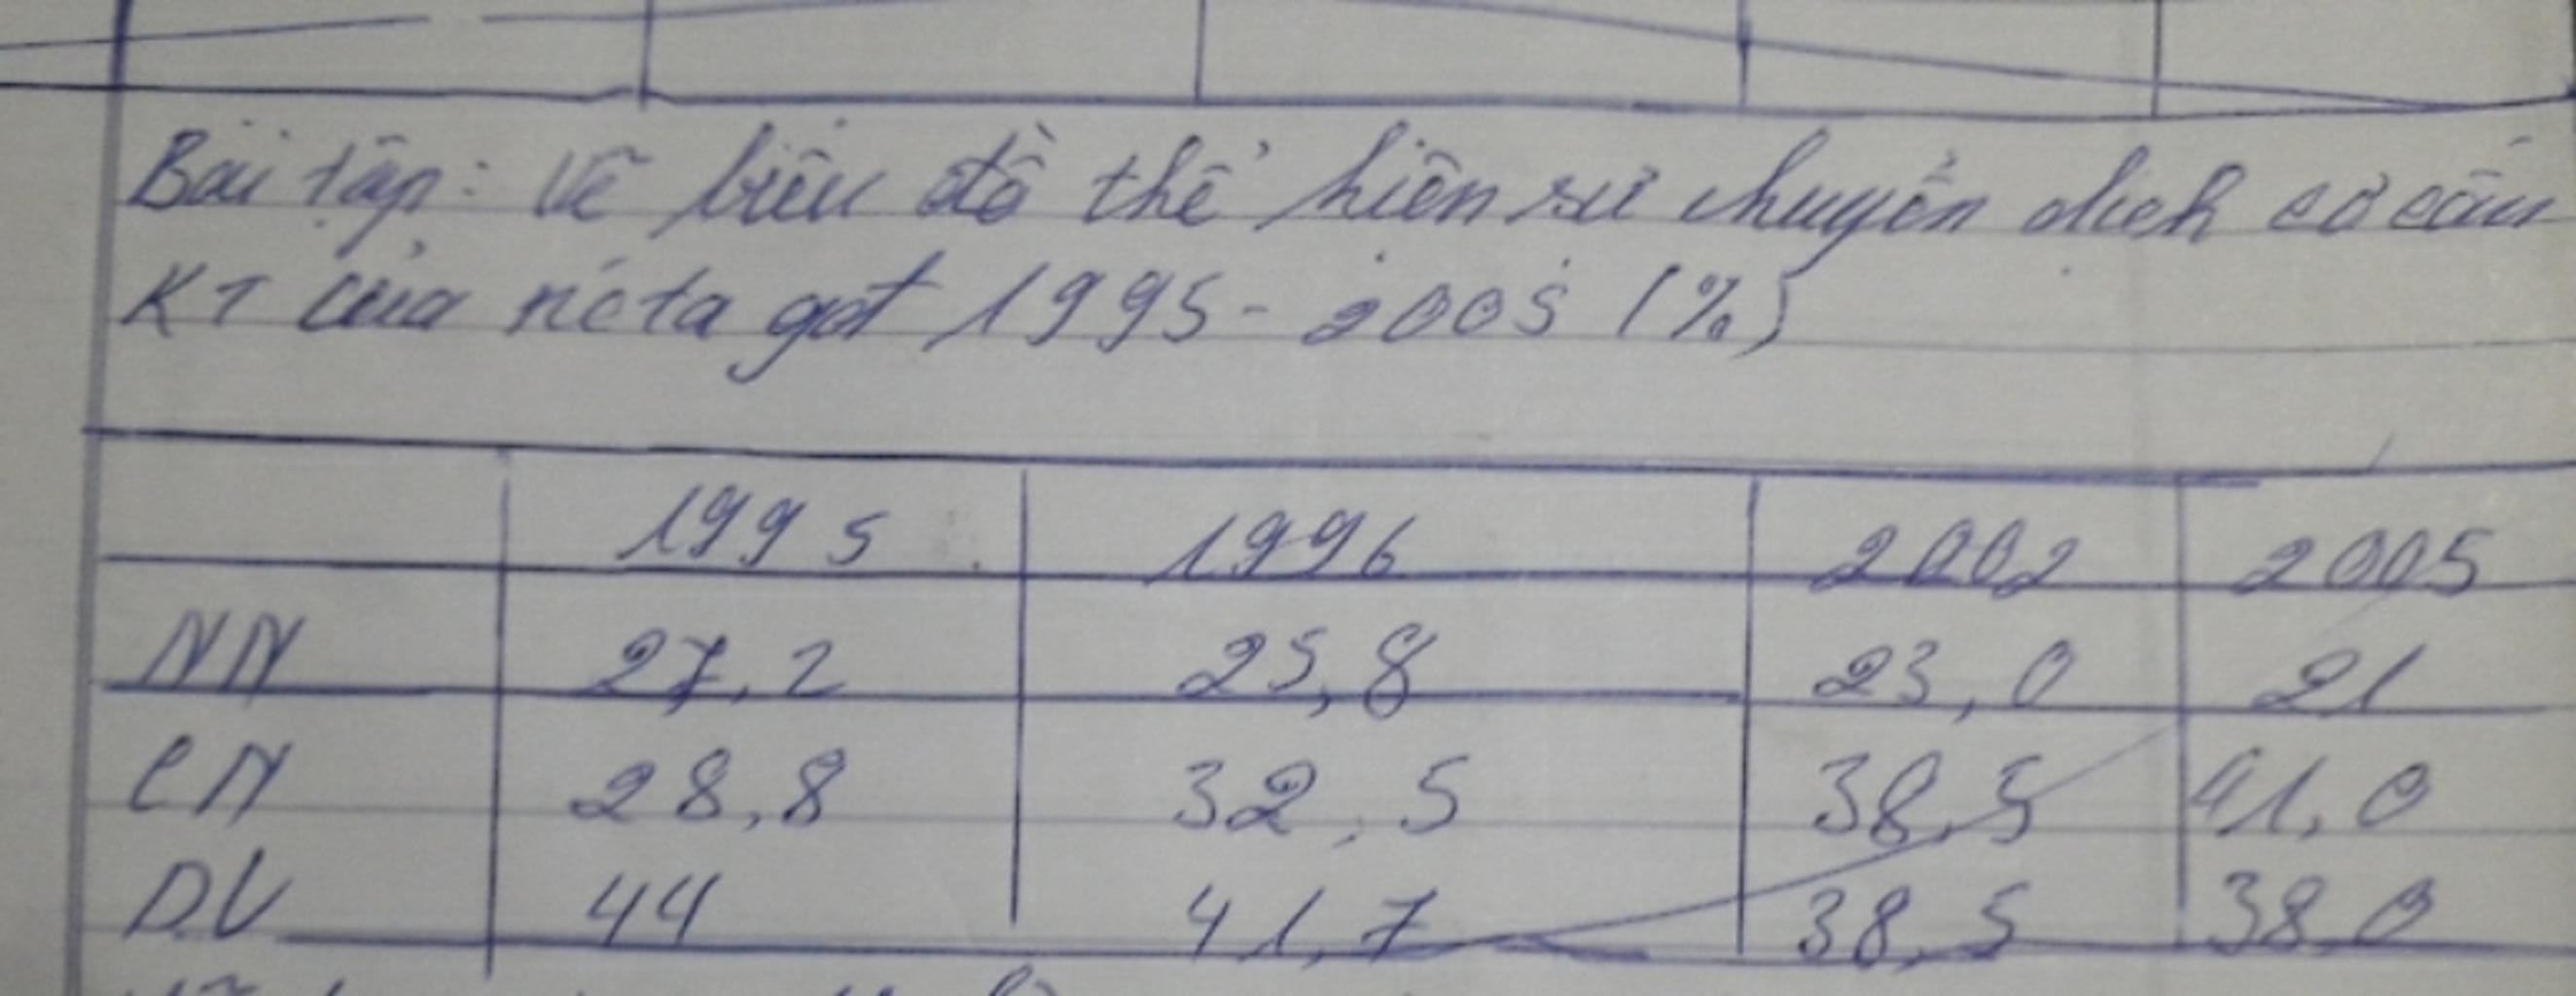 Bài tập: Vẽ biểu đồ thể hiện sự chuyển dịch cơ cấu
KT của nc ta gđ 1995 - 2005 (%)
1995 1996 2002 2005
NN 27,2 25,8 23,0 21
CN 28,8 32,5 38,5 41,0
DV 44 41,7 38,5 38,0